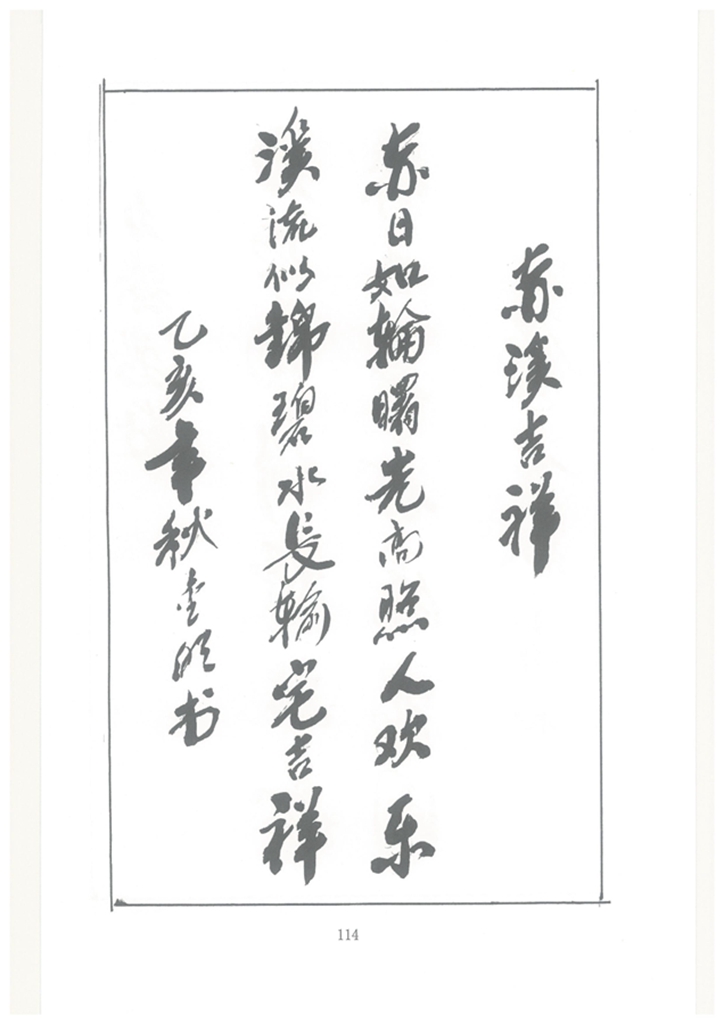 东溪吉祥
东日如輪曙光高照人欢乐
溪流似錦碧水長輸宅吉祥
乙亥年秋书
114